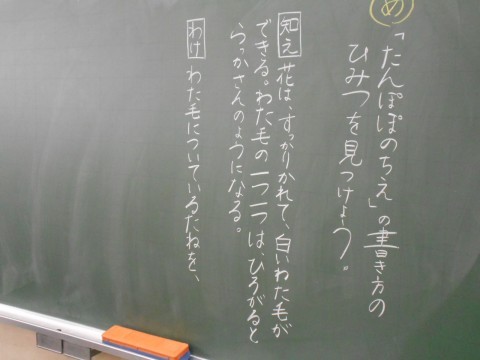 め
「たんぽぽのちえ」の書き方の
ひみつを見つけよう。
知え 花は、すっかりかれて、白いわた毛が
できる。わた毛の一つ一つは、ひろがると
らっかさんのようになる。
わけ わた毛についているたねを、